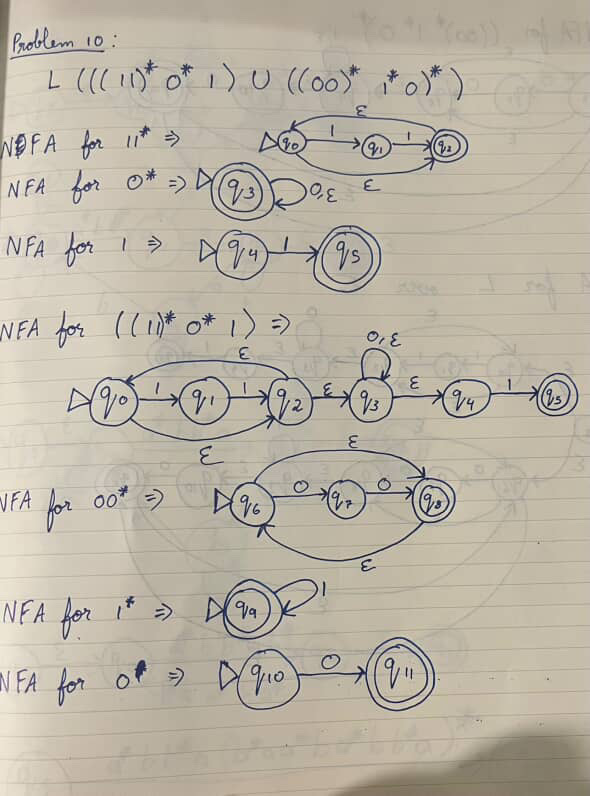 Problem 10:
L ((( 11)* 0* 1) U ((00)* 1* 0)*)
NFA for 11* =>
ε
q0 1 q1 1 q2
ε
NFA for 0* => q3 0,ε
NFA for 1 => q4 1 q5
NFA for ((11)* 0* 1) =>
ε 0,ε
q0 1 q1 1 q2 ε q3 ε q4 1 q5
ε
NFA for 00* =>
ε
q6 0 q7 0 q8
ε
NFA for 1* => q9 1
NFA for 0 => q10 0 q11